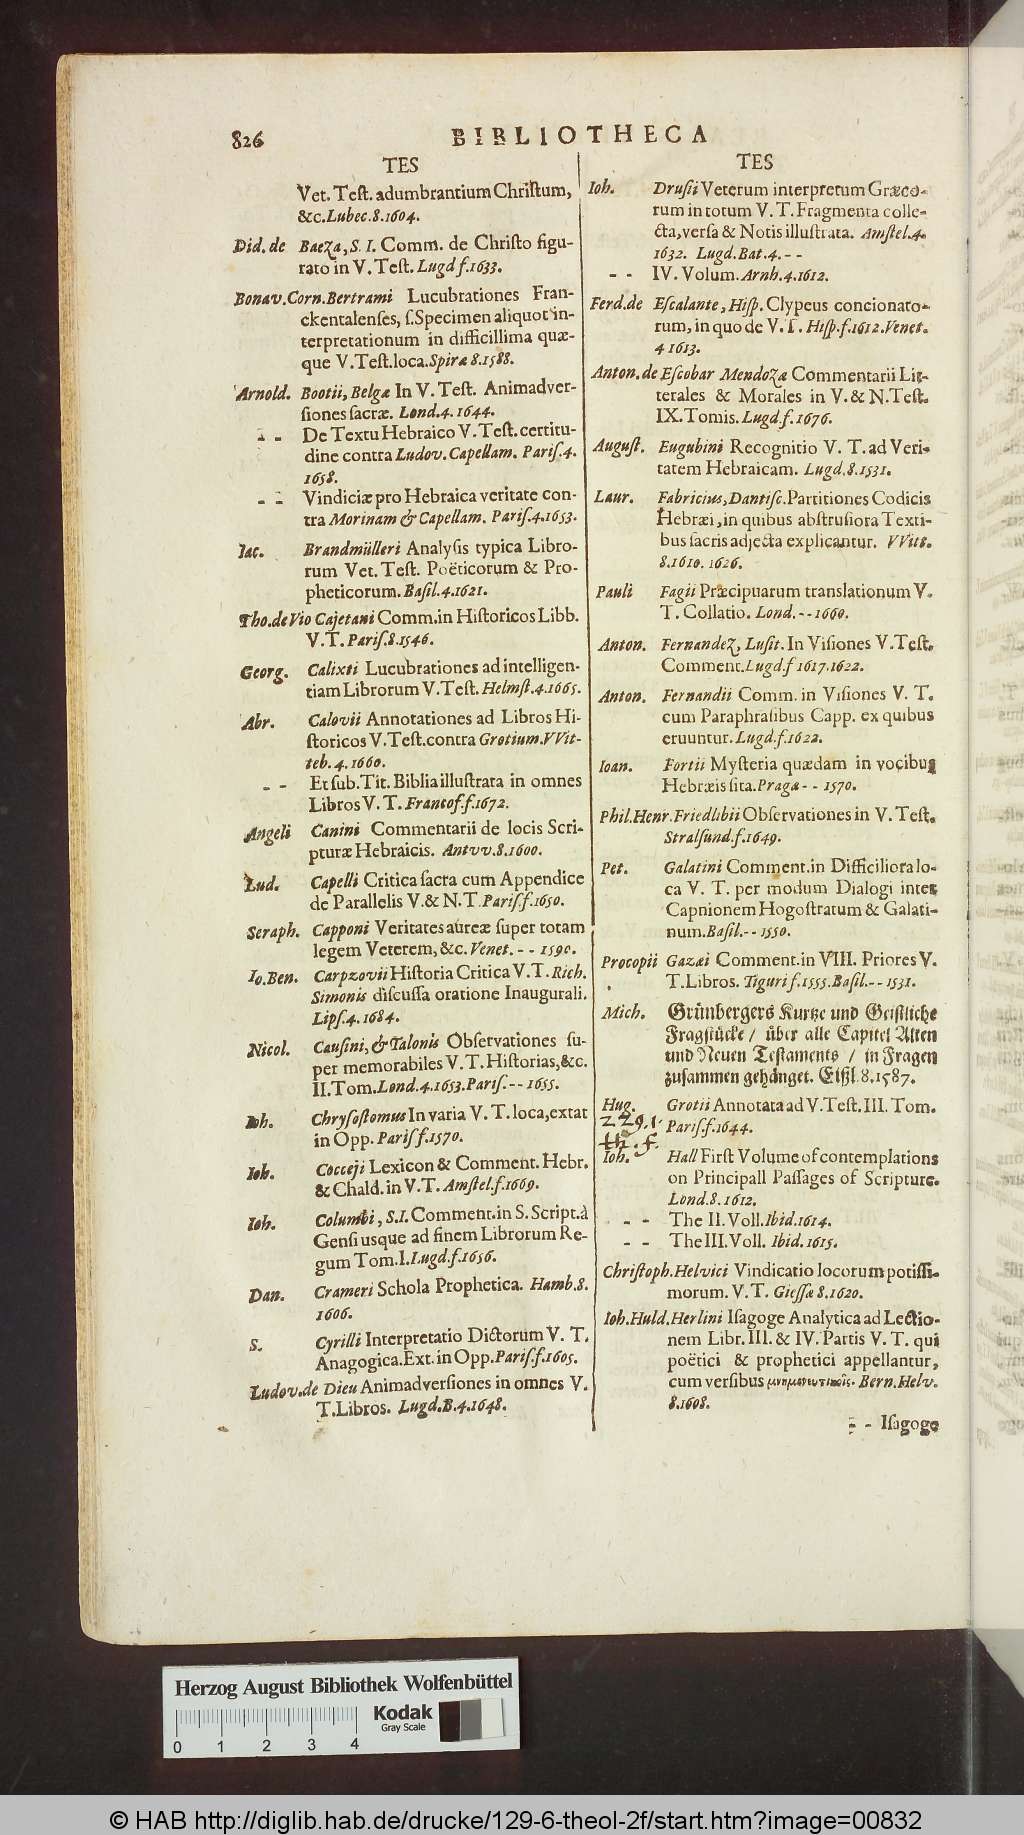 826
BIBLIOTHECA
TES
Vet. Teſt. adumbrantium Chriſtum,
&c. Lubec. 8. 1604.
Did. de Baeza, S. I. Comm. de Chriſto figu-
rato in V. Teſt. Lugd f. 1633.
Bonav. Corn. Bertrami Lucubrationes Fran-
ckentalenſes, ſ. Specimen aliquot in-
terpretationum in difficillima quæ-
que V. Teſt. loca. Spiræ 8. 1588.
Arnold. Bootii, Belgæ In V. Teſt. Animadver-
ſiones ſacræ. Lond. 4. 1644.
- - De Textu Hebraico V. Teſt. certitu-
dine contra Ludov. Capellam. Pariſ. 4.
1658.
- - Vindiciæ pro Hebraica veritate con-
tra Morinam & Capellam. Pariſ. 4. 1653.
Iac. Brandmülleri Analyſis typica Libro-
rum Vet. Teſt. Poëticorum & Pro-
pheticorum. Baſil. 4. 1621.
Tho. de Vio Cajetani Comm. in Hiſtoricos Libb.
V. T. Pariſ. 8. 1546.
Georg. Calixti Lucubrationes ad intelligen-
tiam Librorum V. Teſt. Helmſt. 4. 1665.
Abr. Calovii Annotationes ad Libros Hi-
ſtoricos V. Teſt. contra Grotium. VVit-
teb. 4. 1660.
- - Et ſub. Tit. Biblia illuſtrata in omnes
Libros V. T. Francof. f. 1672.
Angeli Canini Commentarii de locis Scri-
pturæ Hebraicis. Antvv. 8. 1600.
Lud. Capelli Critica ſacra cum Appendice
de Parallelis V. & N. T. Pariſ. f. 1650.
Seraph. Capponi Veritates aureæ ſuper totam
legem Veterem, &c. Venet. - - 1590.
Io. Ben. Carpzovii Hiſtoria Critica V. T. Rich.
Simonis diſcuſſa oratione Inaugurali.
Lipſ. 4. 1684.
Nicol. Cauſini, & Talonis Obſervationes ſu-
per memorabiles V. T. Hiſtorias, &c.
II. Tom. Lond. 4. 1653. Pariſ. - - 1655.
Ioh. Chryſoſtomus In varia V. T. loca, extat
in Opp. Pariſ. f. 1570.
Ioh. Cocceji Lexicon & Comment. Hebr.
& Chald. in V. T. Amſtel. f. 1669.
Ioh. Columbi, S. I. Comment. in S. Script. à
Genſi usque ad finem Librorum Re-
gum Tom. I. Lugd. f. 1656.
Dan. Crameri Schola Prophetica. Hamb. 8.
1606.
S. Cyrilli Interpretatio Dictorum V. T.
Anagogica. Ext. in Opp. Pariſ. f. 1605.
Ludov. de Dieu Animadverſiones in omnes V.
T. Libros. Lugd. B. 4. 1648.
TES
Ioh. Druſii Veterum interpretum Græco-
rum in totum V. T. Fragmenta colle-
cta, verſa & Notis illuſtrata. Amſtel. 4.
1632. Lugd. Bat. 4. - -
- - IV. Volum. Arnh. 4. 1612.
Ferd. de Eſcalante, Hiſp. Clypeus concionato-
rum, in quo de V. T. Hiſp. f. 1612. Venet.
4 1613.
Anton. de Eſcobar Mendoza Commentarii Lit-
terales & Morales in V. & N. Teſt.
IX. Tomis. Lugd. f. 1676.
Auguſt. Eugubini Recognitio V. T. ad Veri-
tatem Hebraicam. Lugd. 8. 1531.
Laur. Fabricius, Dantiſc. Partitiones Codicis
Hebræi, in quibus abſtruſiora Texti-
bus ſacris adjecta explicantur. VVitt.
8. 1610. 1626.
Pauli Fagii Præcipuarum translationum V.
T. Collatio. Lond. - - 1660.
Anton. Fernandez, Luſit. In Viſiones V. Teſt.
Comment. Lugd. f 1617. 1622.
Anton. Fernandii Comm. in Viſiones V. T.
cum Paraphraſibus Capp. ex quibus
eruuntur. Lugd. f. 1622.
Ioan. Fortii Myſteria quædam in vocibus
Hebræis ſita. Pragæ - - 1570.
Phil. Henr. Friedlibii Obſervationes in V. Teſt.
Stralſund. f. 1649.
Pet. Galatini Comment. in Difficiliora lo-
ca V. T. per modum Dialogi inter
Capnionem Hogoſtratum & Galati-
num. Baſil. - - 1550.
Procopii Gazæi Comment. in VIII. Priores V.
T. Libros. Tiguri f. 1555. Baſil. - - 1531.
Mich. Grünbergers Kurtze und Geiſtliche
Fragſtücke / über alle Capitel Alten
und Neuen Teſtaments / in Fragen
zuſammen gehänget. Eißl. 8. 1587.
Hug. Grotii Annotata ad V. Teſt. III. Tom.
229.1. Pariſ. f. 1644.
th. f.
Ioh. Hall Firſt Volume of contemplations
on Principall Paſſages of Scripture.
Lond. 8. 1612.
- - - The II. Voll. Ibid. 1614.
- - The III. Voll. Ibid. 1615.
Chriſtoph. Helvici Vindicatio locorum potiſſi-
morum. V. T. Gieſſæ 8. 1620.
Ioh. Huld. Herlini Iſagoge Analytica ad Lectio-
nem Libr. III. & IV. Partis V. T. qui
poëtici & prophetici appellantur,
cum verſibus Bern. Helv.
8. 1608.
- - Iſagoge
Herzog August Bibliothek Wolfenbüttel
Kodak
Gray Scale
0 1 2 3 4
© HAB http://diglib.hab.de/drucke/129-6-theol-2f/start.htm?image=00832